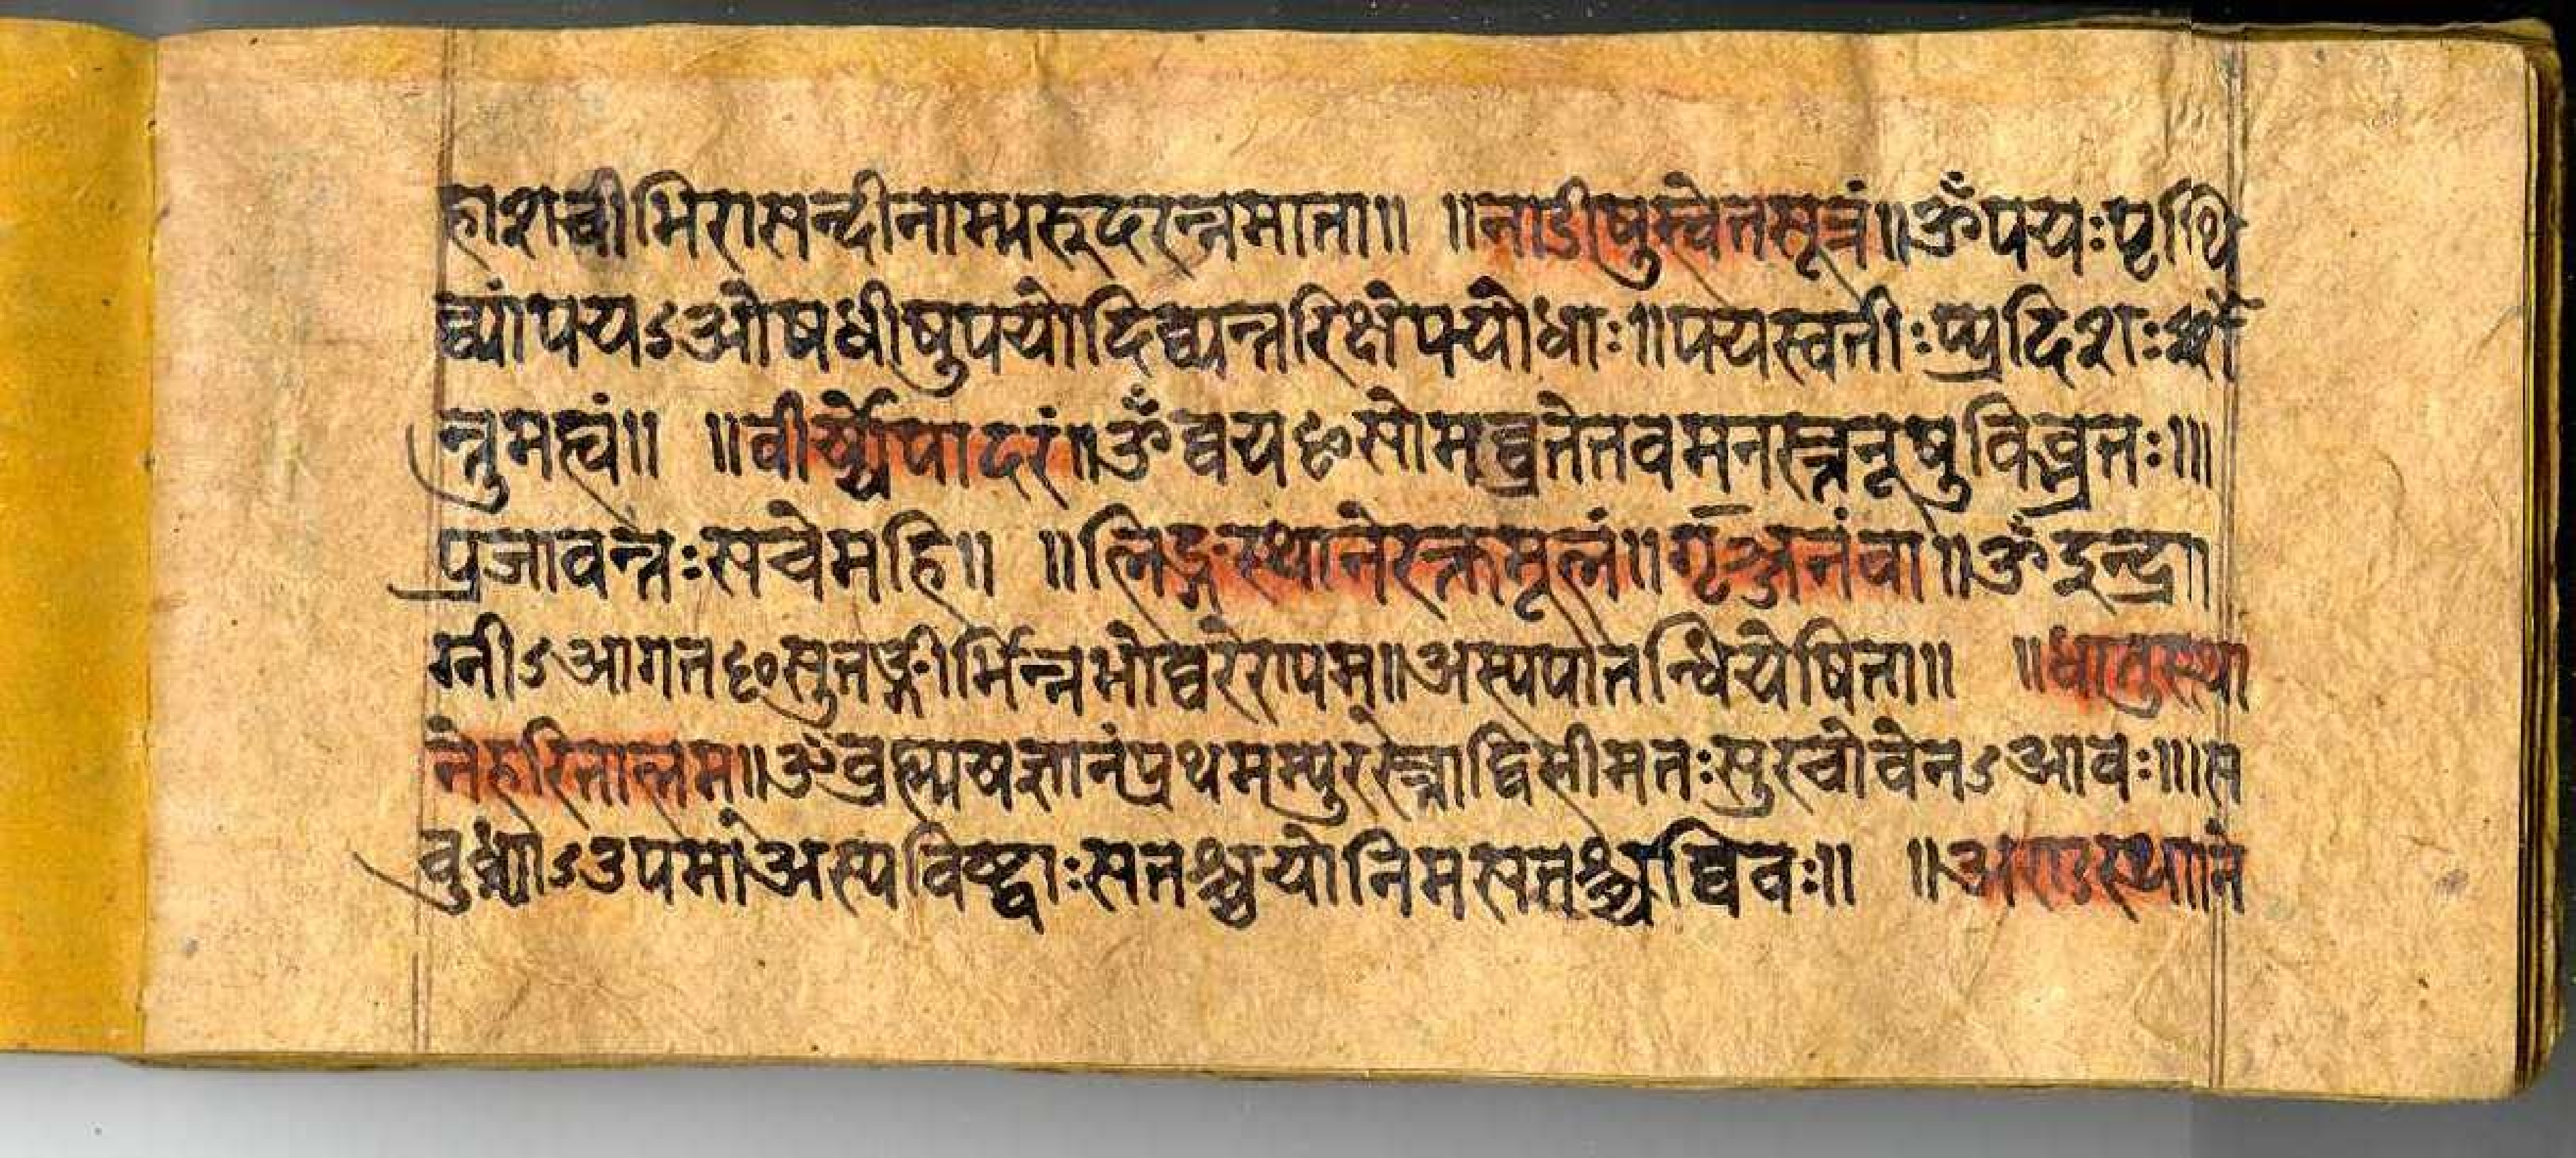 हाशचीभिरासन्दीनाम्प्ररूदरन्नमाता॥ ॥नाडीषुस्वेतसूत्रं॥ॐपयःपृथि
व्यांपयऽओषधीषुपयोदिव्यन्तरिक्षेपयोधाः॥पयस्वतीःप्प्रदिशःसं
न्तुमह्यं॥ ॥वीर्य्येपादरं॥ॐव्वयꣳसोमव्व्रतेतवमनस्तनूषुविब्भ्रतः॥।
प्रजावन्तःसचेमहि॥ ॥लिङ्गस्थानेरक्तमूलं॥गृञ्जनंवा॥ॐइन्द्रा
ग्नीऽआगतꣳसुतङ्गीर्भिन्नभोव्वरेरापम्॥अस्यपातन्धियेषिता॥ ॥धातुस्था
नेहरितालम॥ॐब्रह्मयज्ञानंप्रथमम्पुरस्त्ताद्विसीमतःसुरुचोवेनऽआवः॥।स
वुध्न्याऽउपमांअस्यविष्ट्ठाःसतश्च्चयोनिमसतश्च्चव्विवः॥ ॥अण्डस्थाने